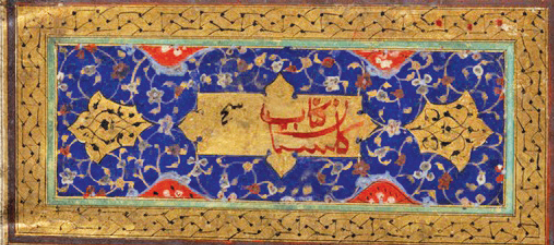 کتاب
کلستان